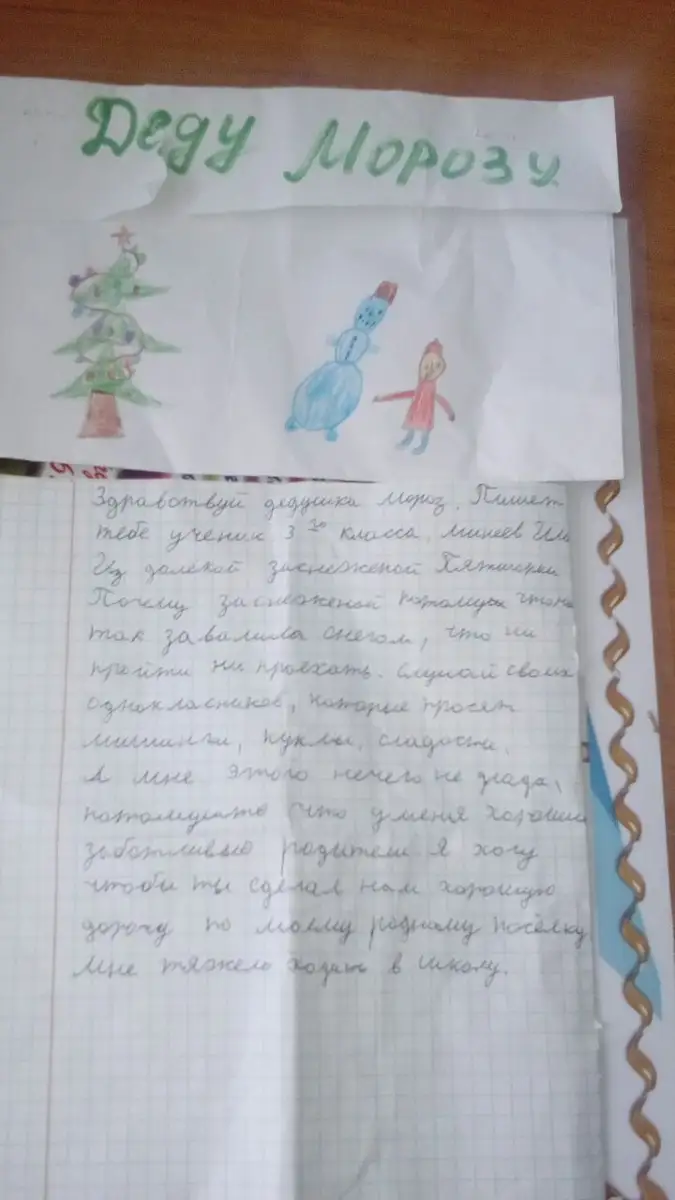 Деду Морозу
Здравствуй дедушка Мороз. Пишет
тебе ученик 3 го класса, Минеев
Из далекой заснеженой
Почему заснеженой
так завалила снегом, что ни
пройти ни проехать. Слушай своих
однокласников, которые просят
машинки, куклы, сладости,
А мне этого нечего не
что у меня хорошие
заботливыю родители Я хочу
чтобы ты сделал нам хорошую
дорогу по моему родному посёлку
Мне тяжело ходить в школу.